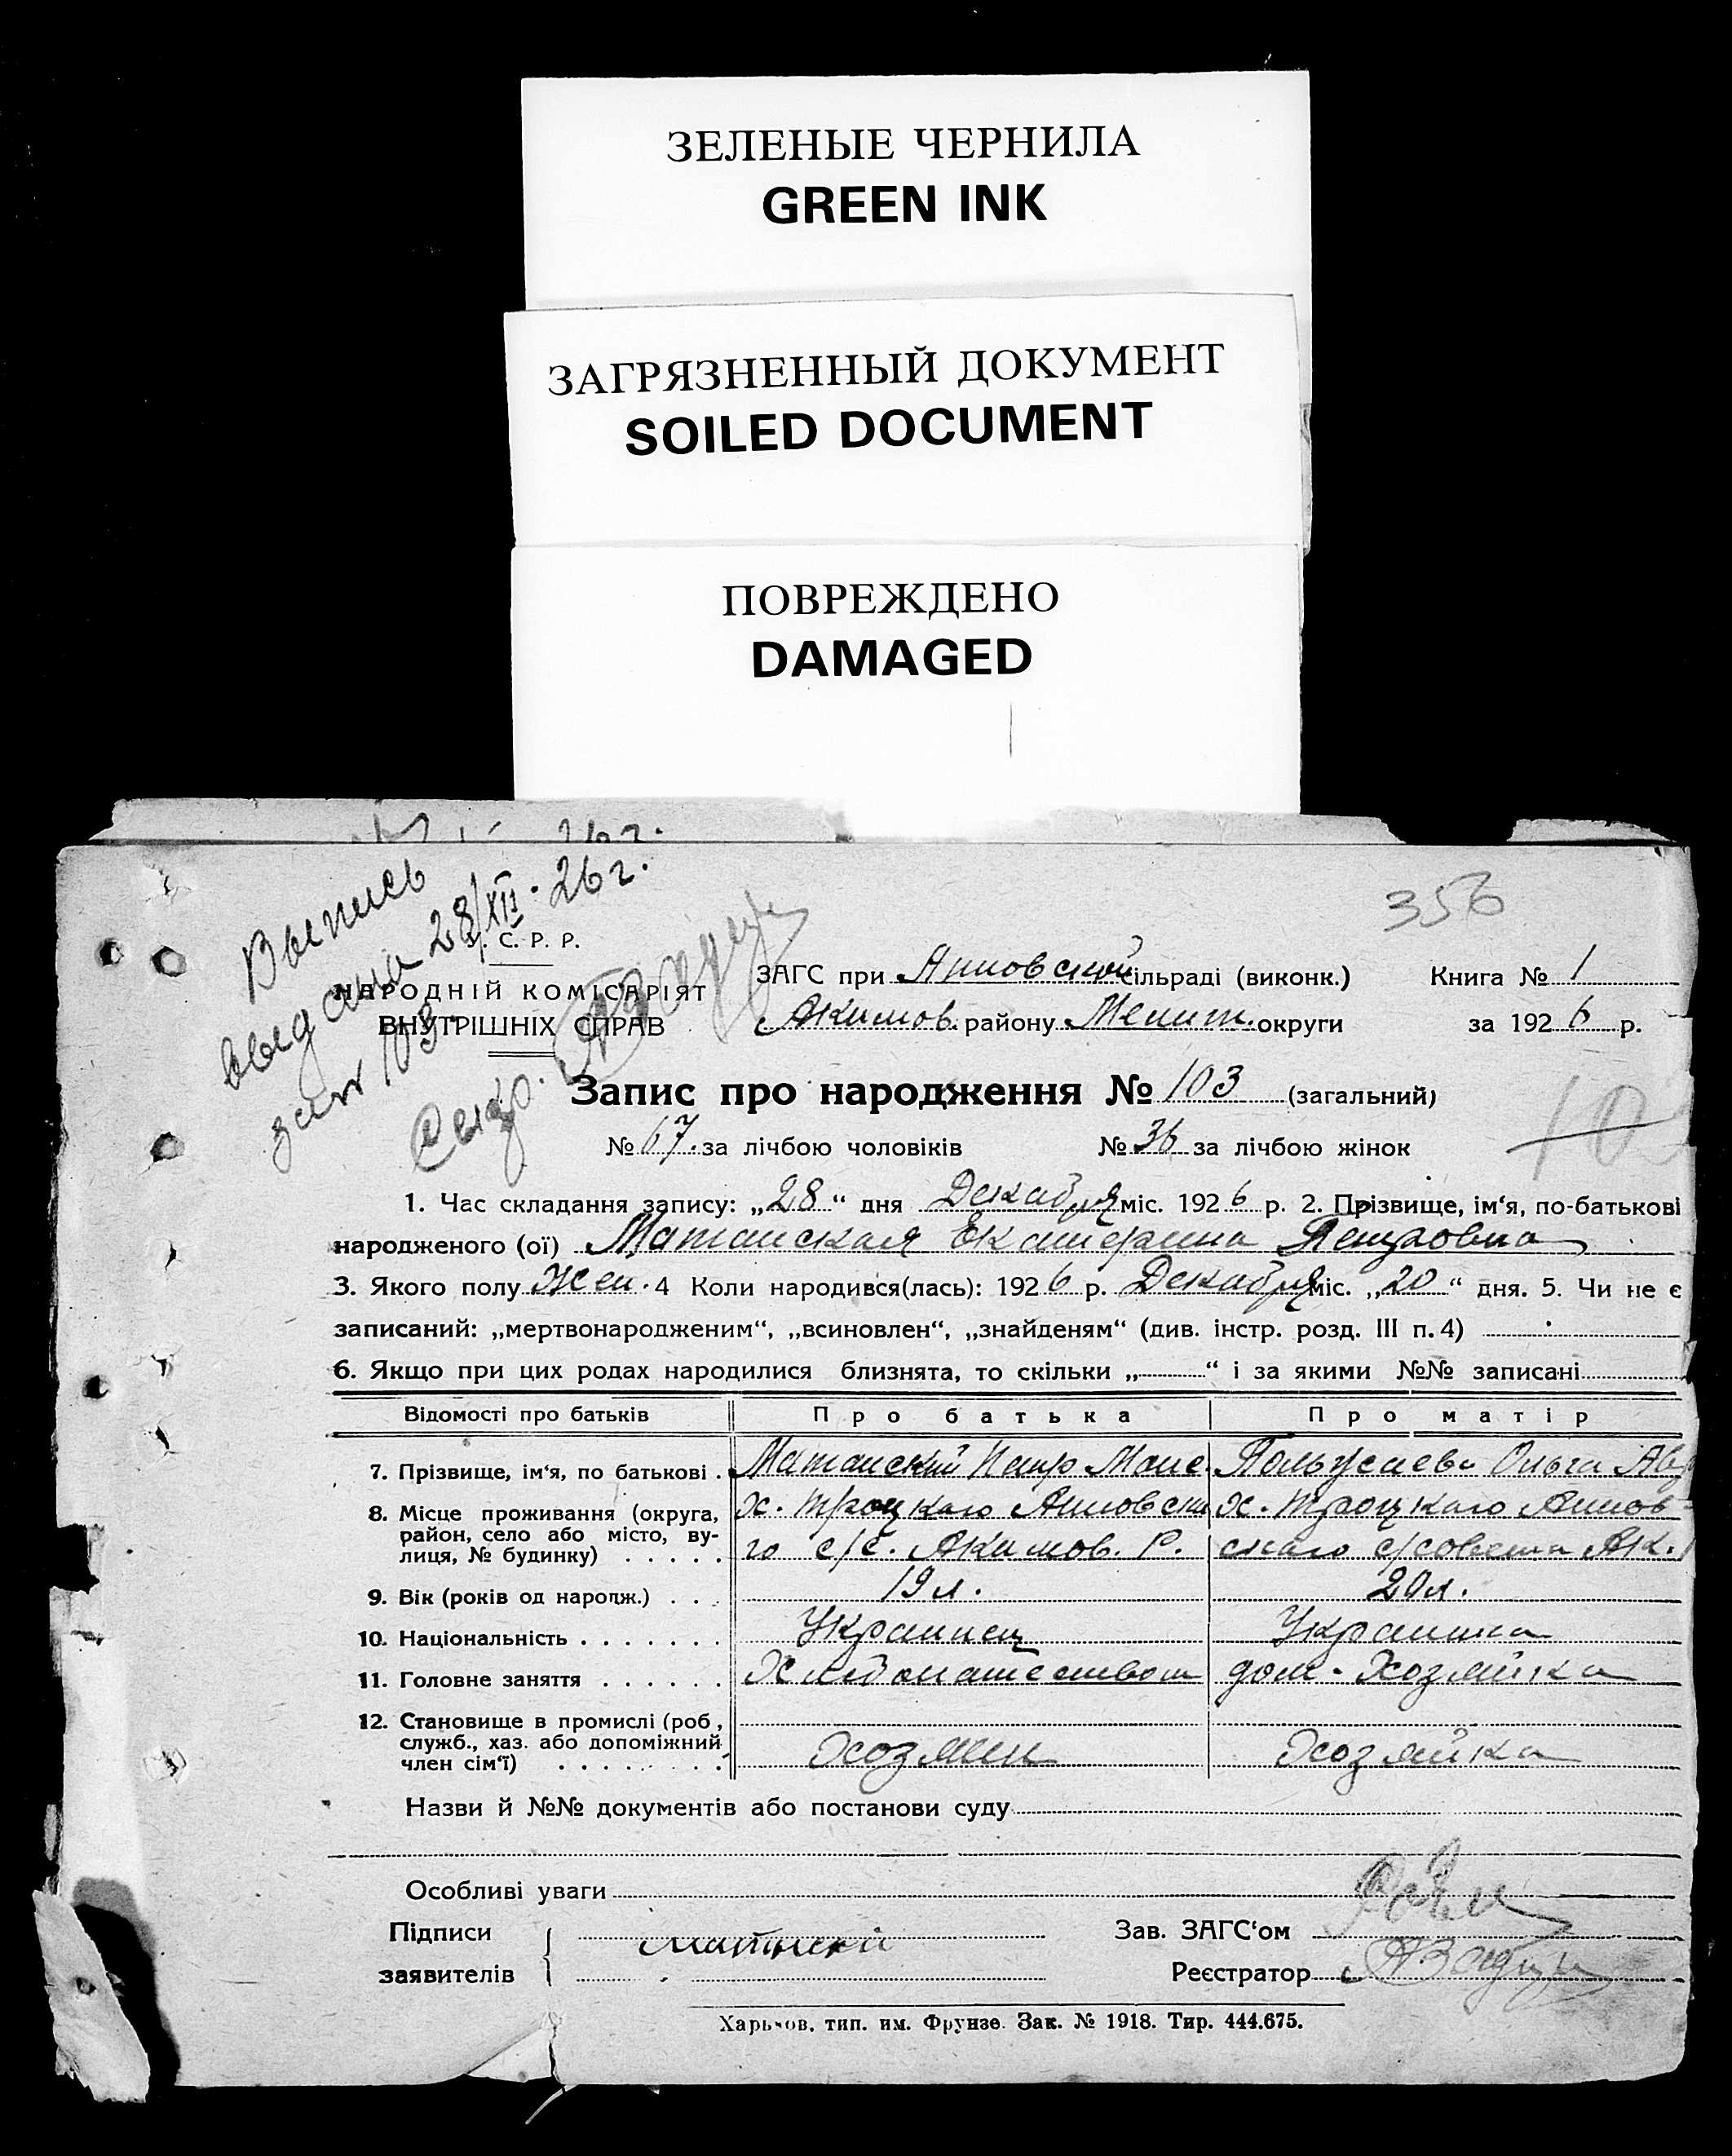 ЗЕЛЕНЫЕ ЧЕРНИЛА
GREEN INK
ЗАГРЯЗНЕННЫЙ ДОКУМЕНТ
SOILED DOCUMENT
ПОВРЕЖДЕНО
DAMAGED
26 г.
Выпись
выдана 28/XII-26 г.
103.
Секр.
356
У. С. Р. Р.
НАРОДНІЙ КОМІСАРІЯТ
ВНУТРІШНІХ СПРАВ
ЗАГС при Анновской сільраді (виконк.) Книга № 1
Акимов. району Мелит. округи за 1926 р.
Запис про народження № 103 (загальний)
10
№ 67. за лічбою чоловіків № 36 за лічбою жінок
1. Час складання запису: „28“ дня Декабря міс. 1926 р. 2. Прізвище, ім‘я, по-батькові
народженого (ої) Матанская Екатерина Петровна
3. Якого полу Жен. 4 Коли народився(лась): 1926 р. Декабря міс. „20“ дня. 5. Чи не є
записаний: „мертвонародженим“, „всиновлен“, „знайденям“ (див. інстр. розд. III п. 4)
6. Якщо при цих родах народилися близнята, то скільки „ “ і за якими №№ записані
Відомості про батьків Про батька Про матір
7. Прізвище, ім‘я, по батькові . Матанский Петр Моис. Ольга Ав
8. Місце проживання (округа, район, село або місто, вулиця, № будинку) . . . . .
х. Троцкаго Анновского с/с. Акимов. Р.
х. Троцкаго Анновскаго с/совета Ак.
9. Вік (років од народж.) . . . 19 л. 20 л.
10. Національність . . . . . . . Украинец Украинка
11. Головне заняття . . . . . . Хлебопашеством дом. Хозяйка
12. Становище в промислі (роб, служб., хаз. або допоміжний член сім‘ї) . . . . . . . . Хозяин Хозяйка
Назви й №№ документів або постанови суду
Особливі уваги
Підписи
заявителів
Матански
Зав. ЗАГС‘ом
Реєстратор
Харьков, тип. им. Фрунзе. Зак. № 1918. Тир. 444.675.